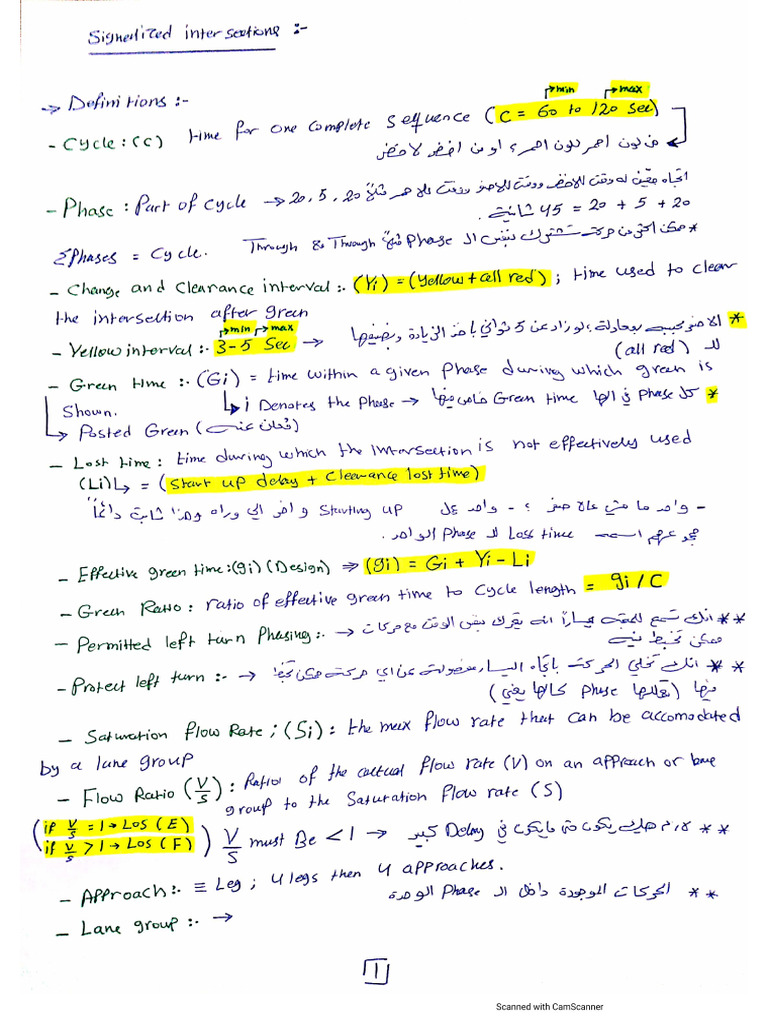 Signalized intersections :-
→ Definitions :-
min max
- Cycle : (C) time for one complete sequence (C = 60 to 120 sec)
من لون احمر للون احمر ؟ او من اخضر لاخضر
- Phase : Part of Cycle → اتجاه معين له وقت للاخضر ووقت للاصفر ووقت للاحمر مثلاً 20 , 5 , 20
20 + 5 + 20 = 45 ثانية .
ΣPhases = Cycle. * ممكن اكثر من حركة تشترك بنفس ال Phase مثلاً Through & Through
- Change and Clearance interval :- (Yi) = (Yellow + all red) ; time used to clear
the intersection after green
min max
- Yellow interval :- 3-5 Sec → * الاصفر بمعادلة ، لو زاد عن 5 ثواني باخذ الزيادة وبضيفها
لل (all red)
- Green time :- (Gi) = time within a given Phase during which green is
Shown. ↳ i Denotes the Phase → * كل Phase في الها Green time خاص فيها
↳ Posted Green
- Lost time : time during which the intersection is not effectively used
(Li) ↳ = (Start up delay + Clearance lost time)
- واحد ما مشي عالاصفر ؟ - واحد Starting up واخر الي وراه وهذا ثابت دائماً
مجموعهم اسمه Loss time لل Phase الواحد .
- Effective green time : (gi) (Design) ⇒ (gi) = Gi + Yi - Li
- Green Ratio : ratio of effective green time to Cycle length = gi / C
- Permitted left turn Phasing :- → ** انك تسمح يساراً انه بنفس الوقت مع حركات
ممكن
- Protect left turn :- → ** انك تخلي الحركة باتجاه اليسار مفصولة عن اي حركة ممكن
فيها (Phase لحالها يعني)
- Saturation flow Rate ; (Si) : the max flow rate that can be accomodated
by a lane group
- Flow Ratio (V/S) : Ratio of the actual flow rate (V) on an approach or lane
group to the Saturation flow rate (S)
(if V/S = 1 → LOS (E)
if V/S > 1 → LOS (F)) V/S must Be < 1 → ** لازم يكون Delay كبير
- Approach :- ≡ Leg ; 4 legs then 4 approaches.
- Lane group :- → ** الحركات الموجودة داخل ال Phase الوحدة
1
Scanned with CamScanner